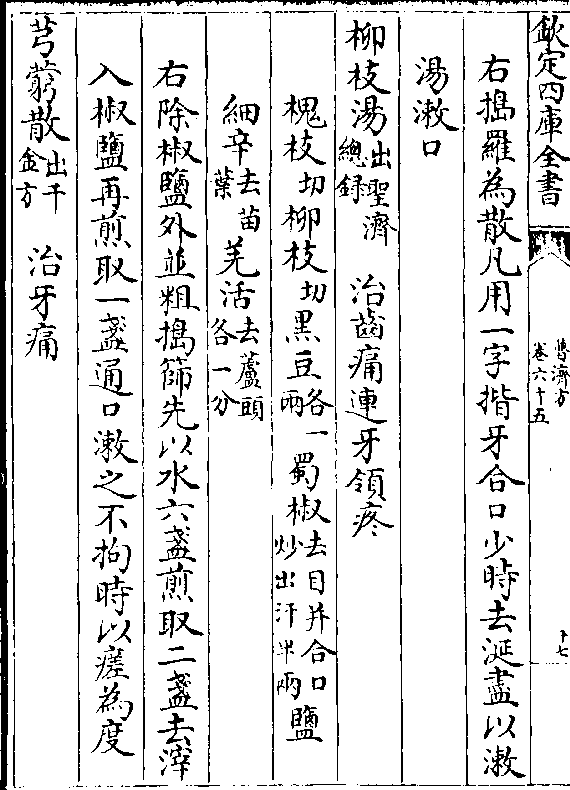 欽定四庫全書
普濟方
卷六十五
十七
右搗羅為散凡用一字揩牙合口少時去涎盡以漱
湯漱口
柳枝湯出聖濟總録 治齒痛連牙領疼
槐枝切柳枝切黒豆各一兩蜀椒去目并合口炒出汗半兩鹽
細辛去苗葉羌活去蘆頭各一分
右除椒鹽外並粗搗篩先以水六盞煎取二盞去滓
入椒鹽再煎取一盞通口漱之不拘時以瘥為度
芎藭散出千金方 治牙痛